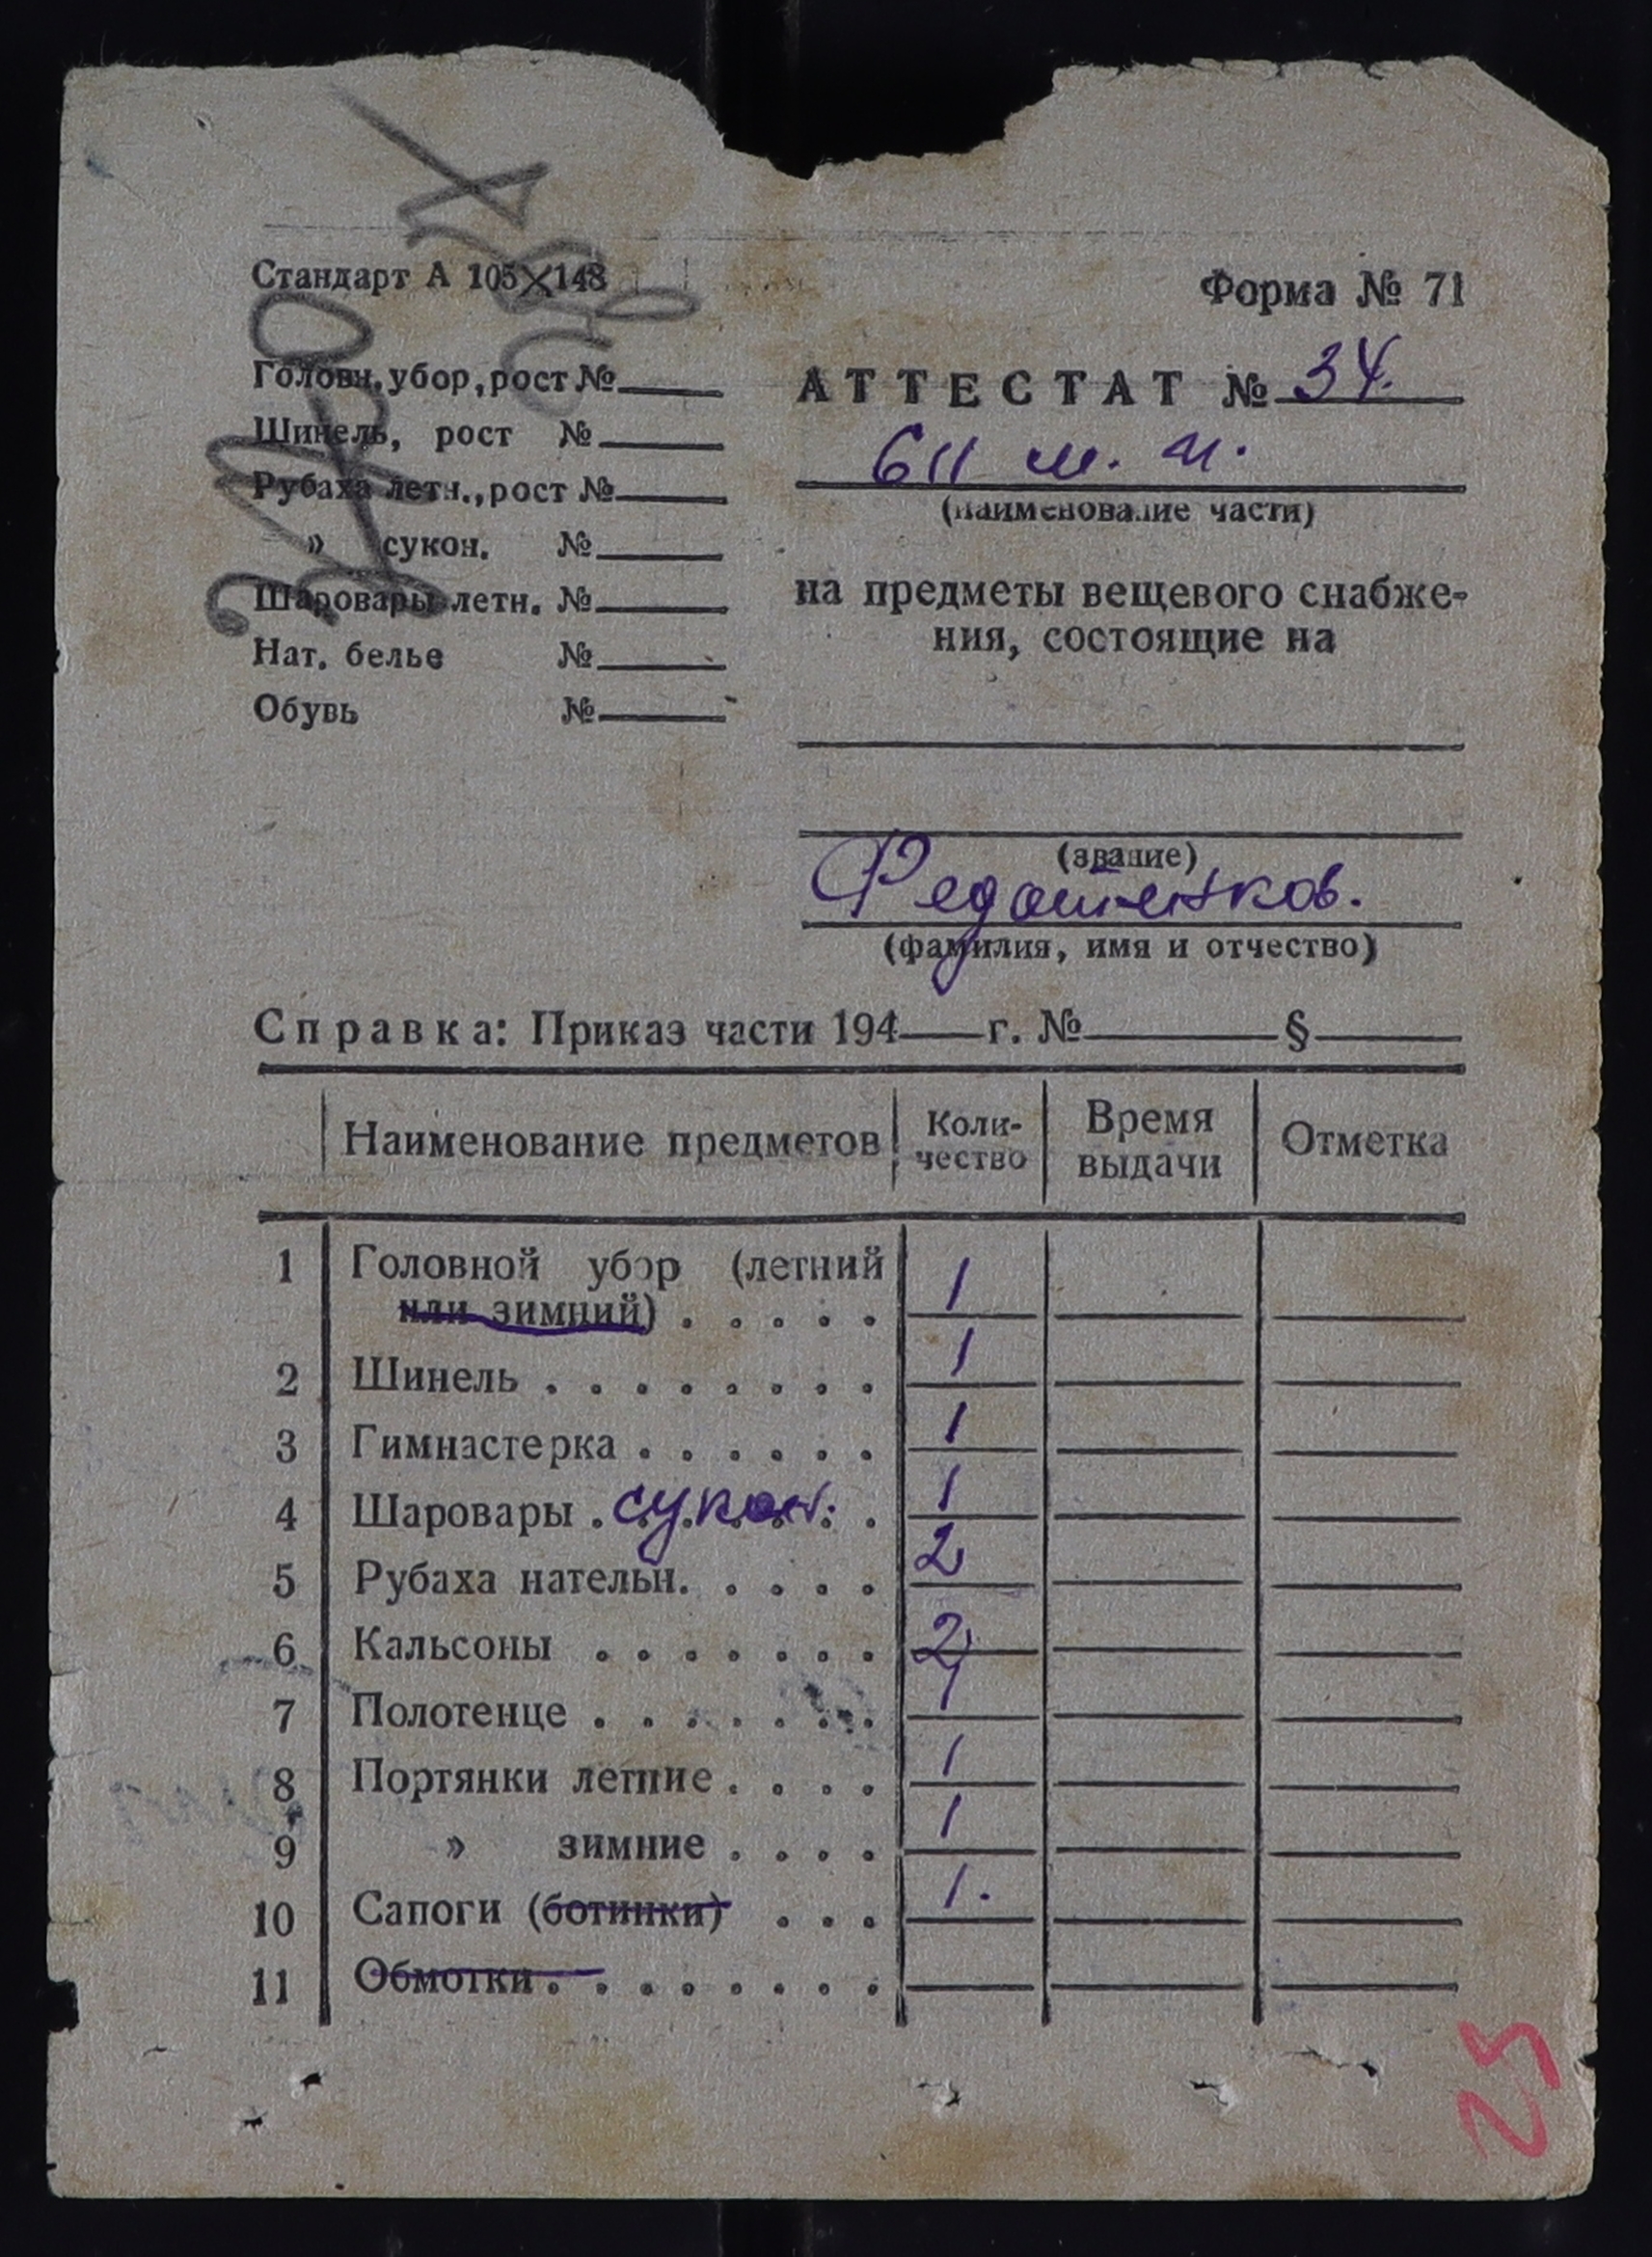 Стандарт А 105×148
Форма № 71
Головн. убор, рост №
Шинель, рост №
Рубаха летн., рост №
» сукон. №
Шаровары летн. №
Нат. белье №
Обувь №
АТТЕСТАТ № 34.
611 м. п.
(наименование части)
на предметы вещевого снабже-
ния, состоящие на
(звание)
Федотенков.
(фамилия, имя и отчество)
Справка: Приказ части 194 г. № §
Наименование предметов Коли-чество Время выдачи Отметка
1 Головной убор (летний
или зимний) . . . . . 1
2 Шинель . . . . . . . . 1
3 Гимнастерка . . . . . . 1
4 Шаровары . сукон. . 1
5 Рубаха нательн. . . . . 2
6 Кальсоны . . . . . . . 2
7 Полотенце . . . . . . . 1
8 Портянки летние . . . . 1
9 » зимние . . . . 1
10 Сапоги (ботинки) . . . 1.
11 Обмотки . . . . . . . .
25